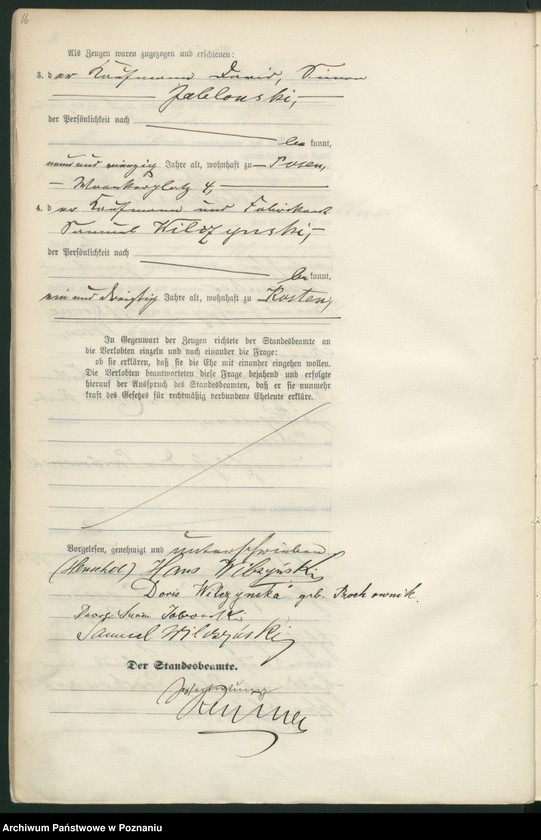 16
Als Zeugen waren zugezogen und erschienen:
3. der Kaufmann David, Simon
Jablonski,
der Persönlichkeit nach
bekannt,
neun und vierzig Jahre alt, wohnhaft zu Posen,
4,
4. der Kaufmann und Fabrikant
Samuel Wilczynski,
der Persönlichkeit nach
bekannt,
ein und dreißig Jahre alt, wohnhaft zu Kosten,
In Gegenwart der Zeugen richtete der Standesbeamte an
die Verlobten einzeln und nach einander die Frage:
ob sie erklären, daß sie die Ehe mit einander eingehen wollen.
Die Verlobten beantworteten diese Frage bejahend und erfolgte
hierauf der Ausspruch des Standesbeamten, daß er sie nunmehr
kraft des Gesetzes für rechtmäßig verbundene Eheleute erkläre.
Vorgelesen, genehmigt und unterschrieben
(Henschel) Hans Wilczyński
Doris Wilczynska geb. Prochownik.
Simon Jablonski
Samuel Wilczyński
Der Standesbeamte.
In Vertretung
Archiwum Państwowe w Poznaniu